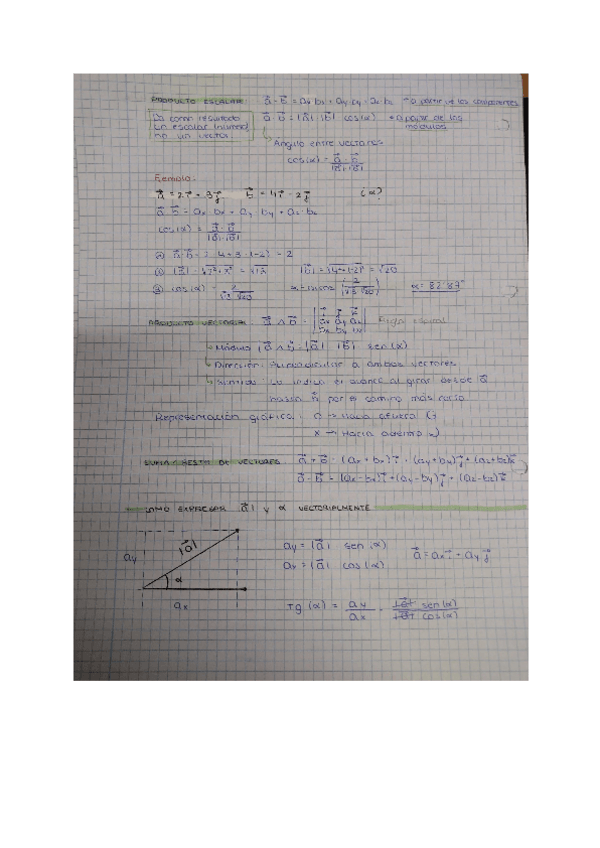 PRODUCTO ESCALAR: a⃗ · b⃗ = ax·bx + ay·by + az·bz → a partir de las componentes
Da como resultado un escalar (número) no un vector
a⃗ · b⃗ = |a⃗| · |b⃗| · cos(α) → a partir de los módulos
Ángulo entre vectores
cos(α) = a⃗ · b⃗ / |a⃗|·|b⃗|
Ejemplo:
a⃗ = 2i⃗ + 3j⃗ b⃗ = 4i⃗ - 2j⃗ ¿α?
a⃗ · b⃗ = ax · bx + ay · by + az · bz
cos(α) = a⃗ · b⃗ / |a⃗|·|b⃗|
a⃗ · b⃗ = 2 · 4 + 3 · (-2) = 2
|b⃗| = √4²+(-2)² = √20
cos(α) = 2 / √20
α = 82'87°
PRODUCTO VECTORIAL: a⃗ ∧ b⃗ =
Módulo |a⃗ ∧ b⃗| = |a⃗| · |b⃗| · sen(α)
Dirección: Perpendicular a ambos vectores
Sentido: Lo indica el avance al girar desde a⃗
hasta b⃗ por el camino más corto
Representación gráfica: → Hacia afuera
x → Hacia adentro
SUMA Y RESTA DE VECTORES: a⃗ + b⃗ = (ax + bx)i⃗ + (ay + by)j⃗ + (az + bz)k⃗
a⃗ - b⃗ = (ax - bx)i⃗ + (ay - by)j⃗ + (az - bz)k⃗
COMO EXPRESAR |a⃗| y α VECTORIALMENTE
ay |a⃗| α ax
ay = |a⃗| · sen(α)
ax = |a⃗| · cos(α)
a⃗ = ax i⃗ + ay j⃗
Tg(α) = ay / ax = |a⃗| sen(α) / |a⃗| cos(α)